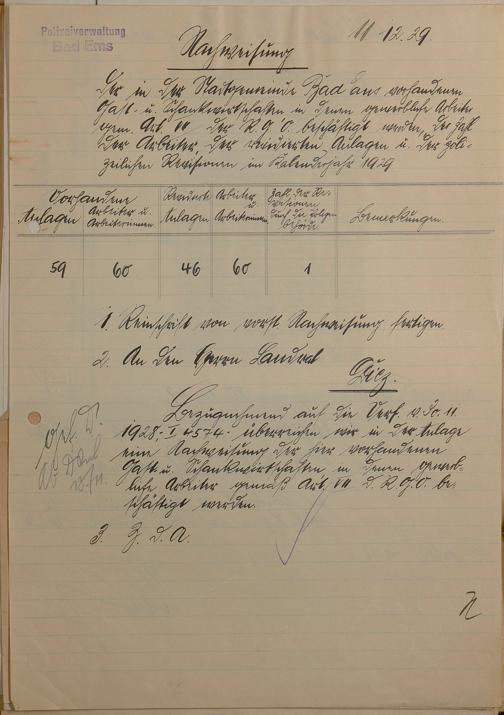 Polizeiverwaltung
Bad Ems
11.12.29.
Nachweisung
der in der Stadtgemeinde Bad Ems vorhandenen
Gast- u. Schankwirtschaften in denen gewerbliche Arbeiter
gem. Art. VII der R.G.O. beschäftigt werden, der Zahl
der Arbeiter der revidierten Anlagen u. der poli-
zeilichen Revisionen im Kalenderjahr 1929
Vorhandene Anlagen
Arbeiter u. Arbeiterinnen
Revidierte Anlagen
Arbeiter u. Arbeiterinnen
Zahl der Re-
visionen
durch die
Bemerkungen
59 60 46 60 1
1. Reinschrift von vorst. Nachweisung fertigen
2. An den Herrn Landrat
Diez.
Bezugnehmend auf die Verf. v. 30.11
1928, überreichen wir in der Anlage
eine Nachweisung der hier vorhandenen
Gast- u. Schankwirtschaften in denen gewerb-
liche Arbeiter gemäß Art. VII d. R.G.O. be-
schäftigt werden.
3. Z. d. A.